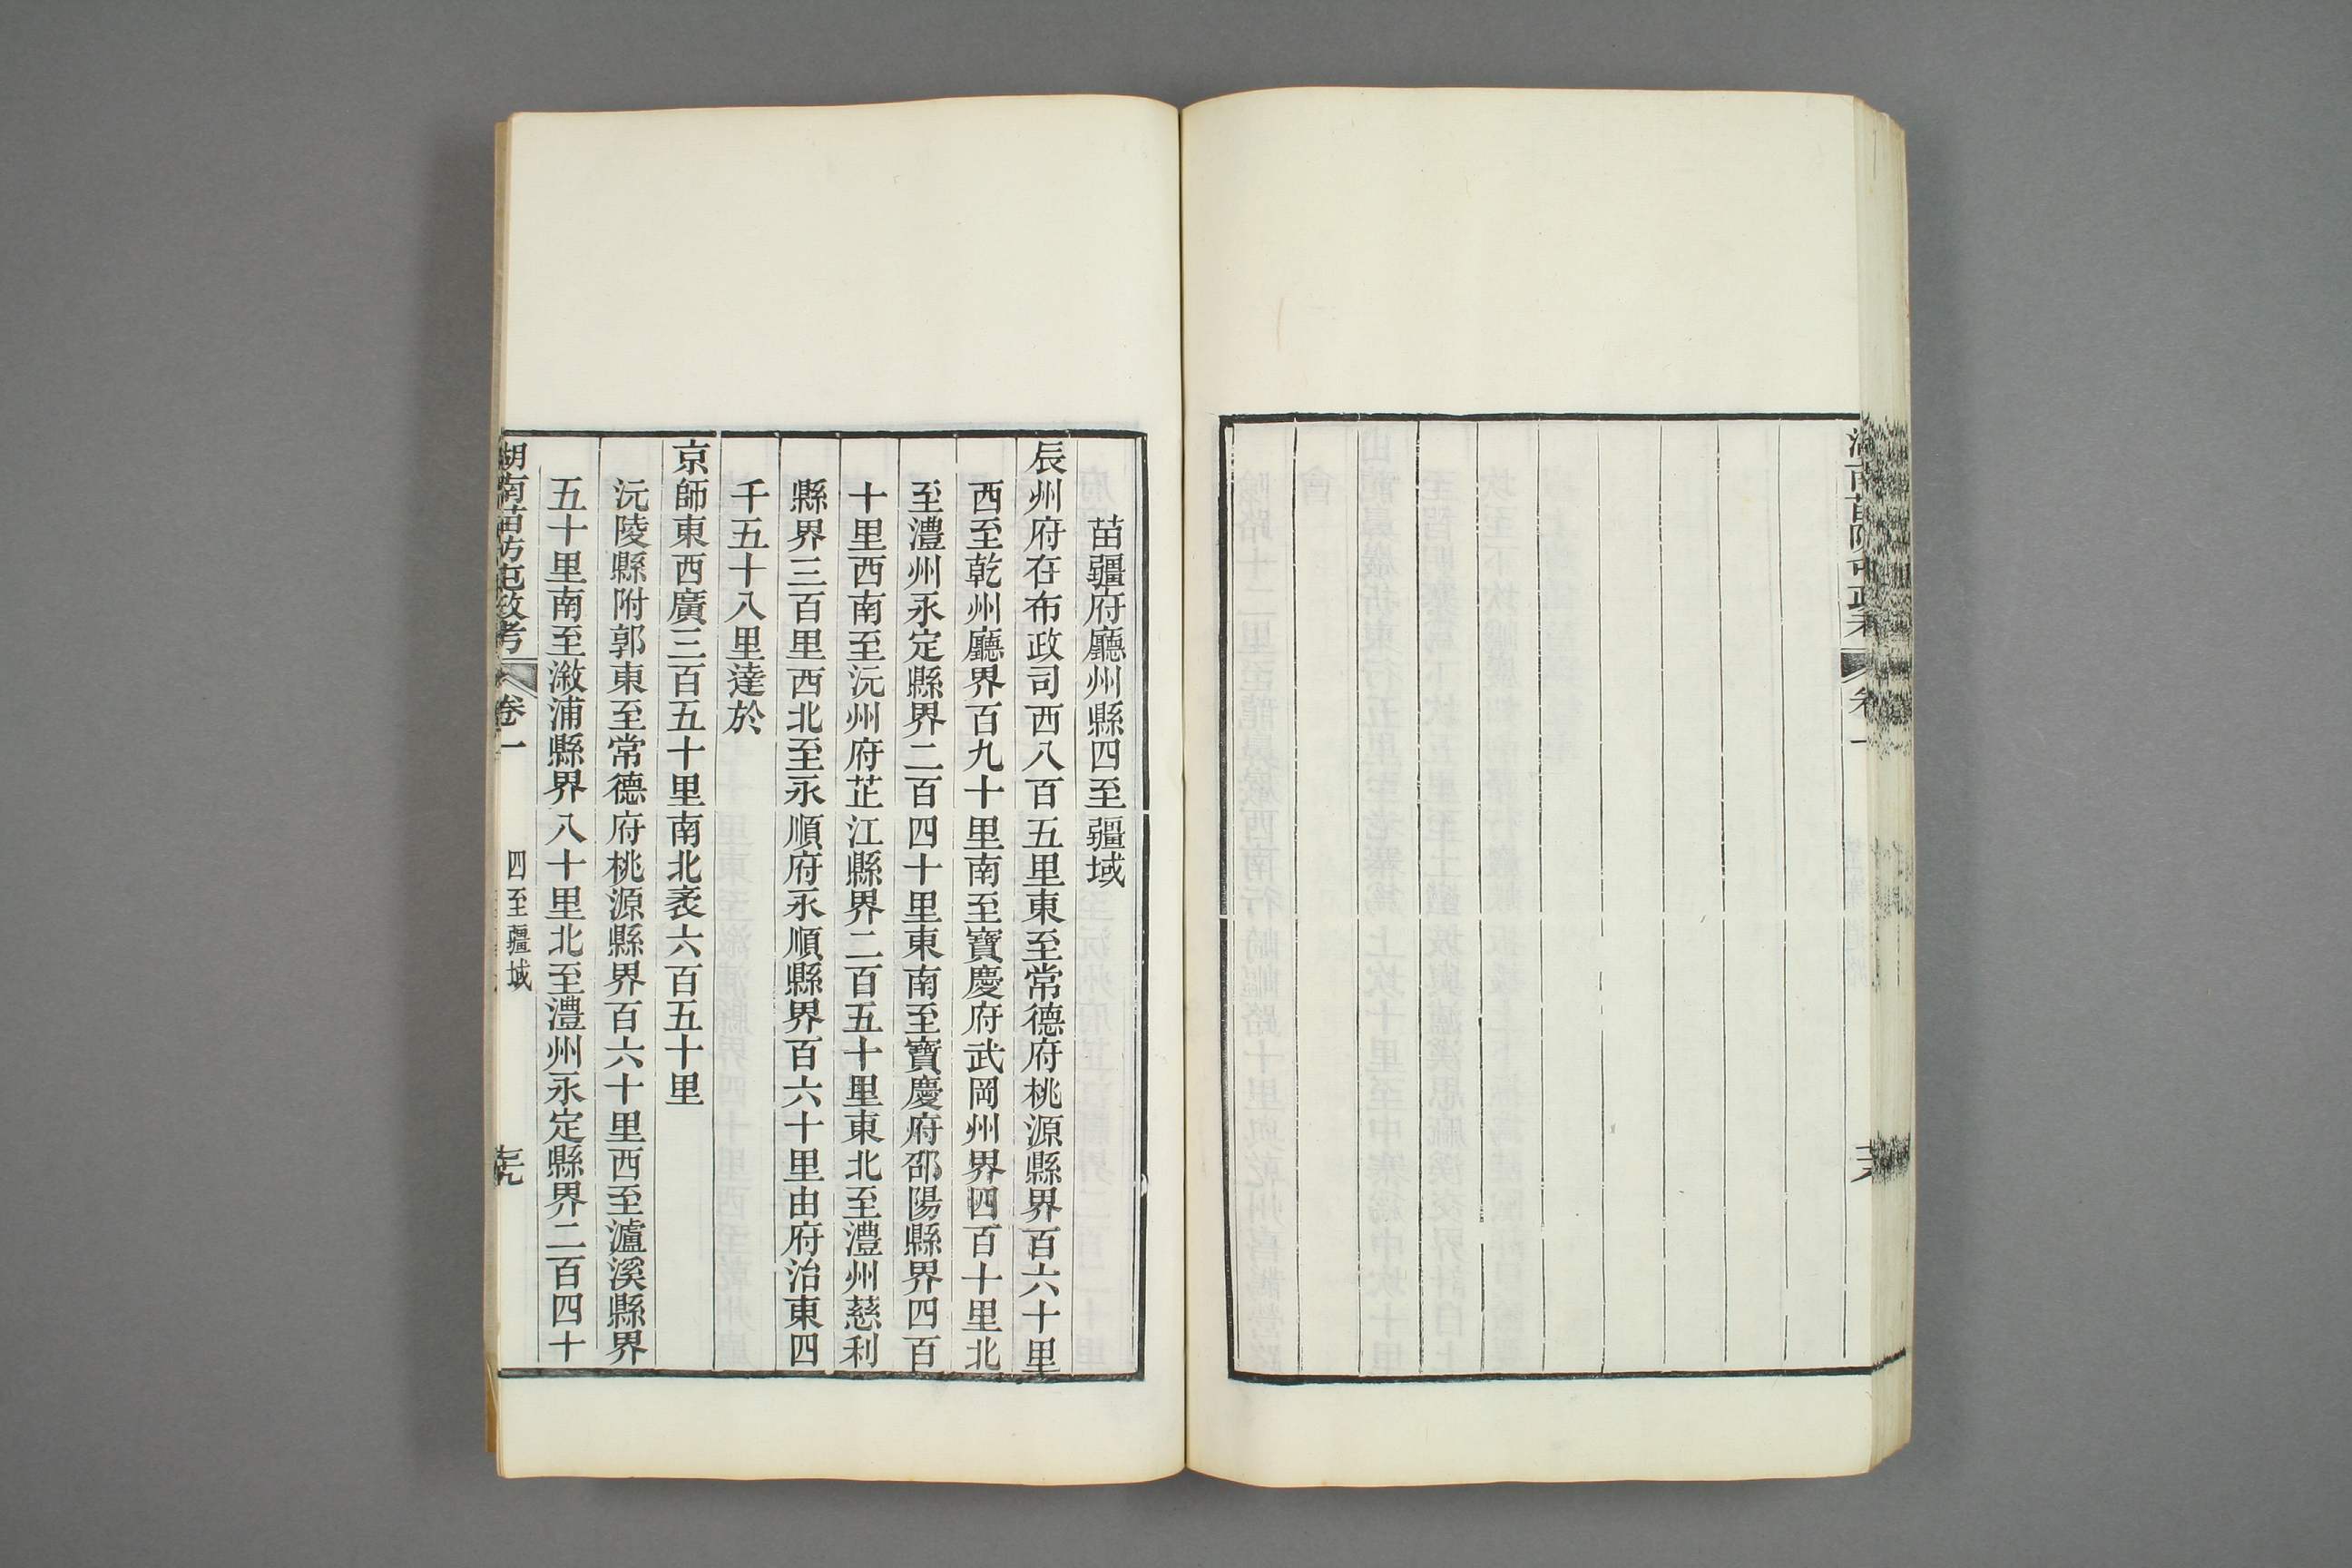 苗疆府廳州縣四至疆域
辰州府在布政司西八百五里東至常德府桃源縣界百六十里
西至乾州廳界百九十里南至寶慶府武岡州界四百十里北
至澧州永定縣界二百四十里東南至寶慶府邵陽縣界四百
十里西南至沅州府芷江縣界二百五十里東北至澧州慈利
縣界三百里西北至永順府永順縣界百六十里由府治東四
千五十八里達於
京師東西廣三百五十里南北袤六百五十里
沅陵縣附郭東至常德府桃源縣界百六十里西至瀘溪縣界
五十里南至漵浦縣界八十里北至澧州永定縣界二百四十
湖南苗防屯政考
卷一
四至疆域